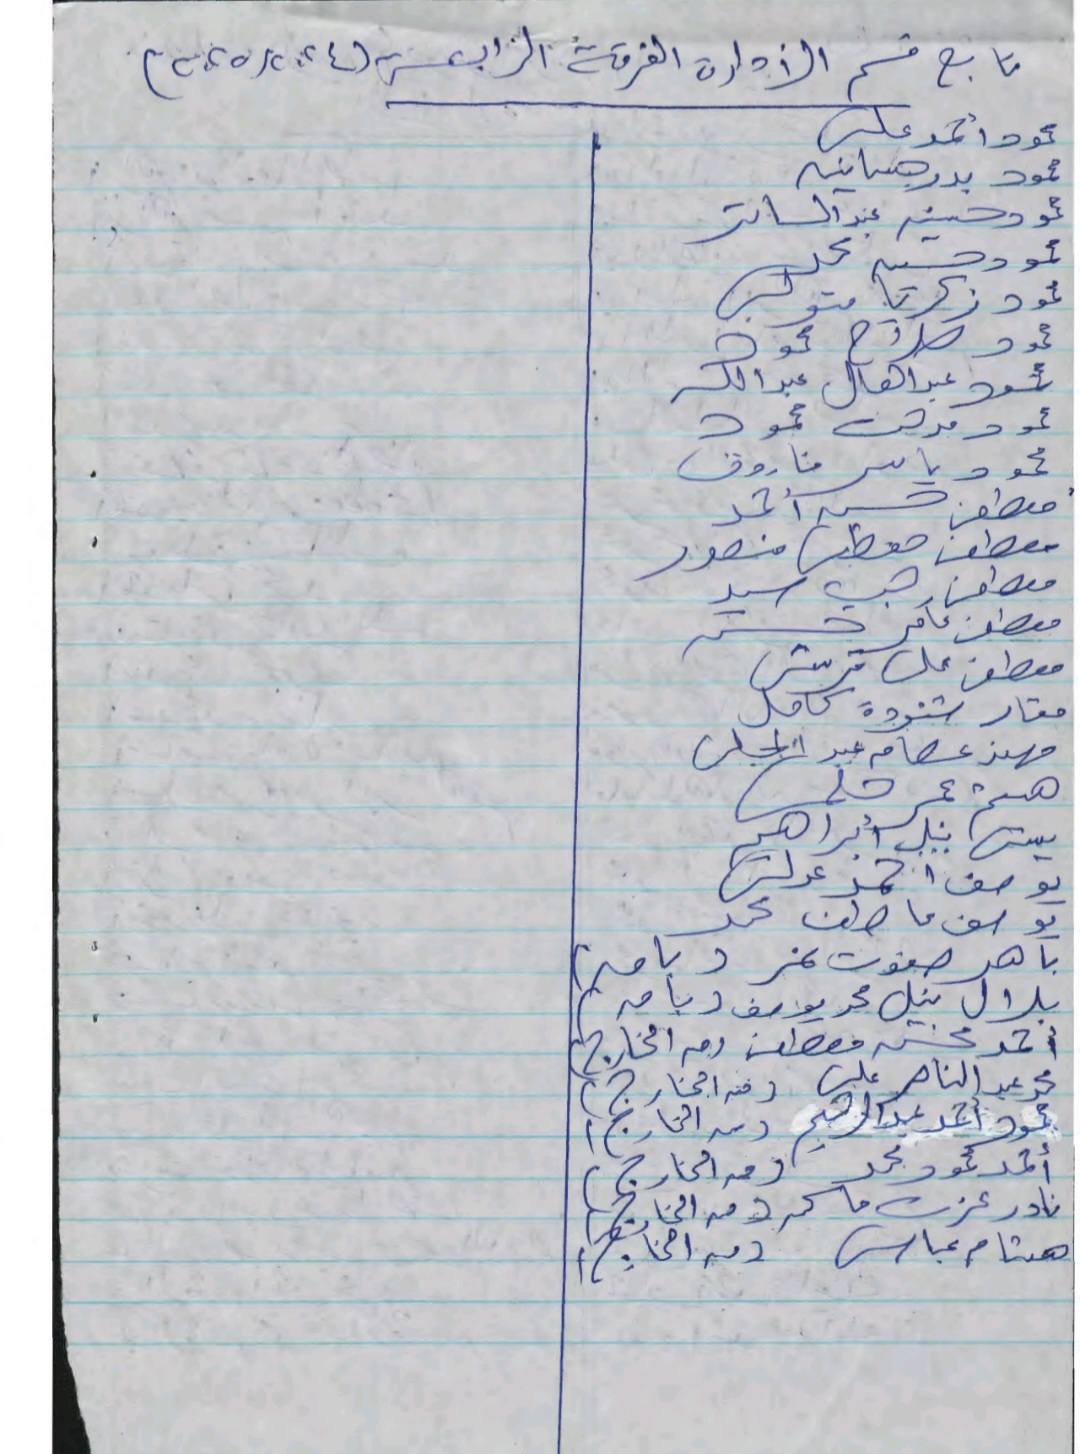 تابع قسم الإدارة الفرقة الرابعة (٢٠٢٤/٢٠٢٥م)
محمود أحمد على
محمود بدر حسانين
محمود حسين عبد الستار
محمود حسين محمد
محمود زكريا متولى
محمود صلاح محمود
محمود عبد العال عبد الله
محمود مدحت محمود
محمود ياسر فاروق
مصطفى حسين أحمد
مصطفى مصطفى منصور
مصطفى رجب سيد
مصطفى عامر حسن
مصطفى على قرشى
مقار شنودة كامل
مهند عصام عبد
هيثم عمر حلمى
بيشوى نبيل ابراهيم
يوسف احمد
يوسف عاطف محمد
باهر صفوت
بلال نبيل محمد يوسف
أحمد محسن مصطفى (من الخارج)
محمد عبد الناصر على (من الخارج)
محمود أحمد عبد الرحيم (من الخارج)
أحمد محمود محمد (من الخارج)
نادر عزت (من الخارج)
هشام عباس (من الخارج)